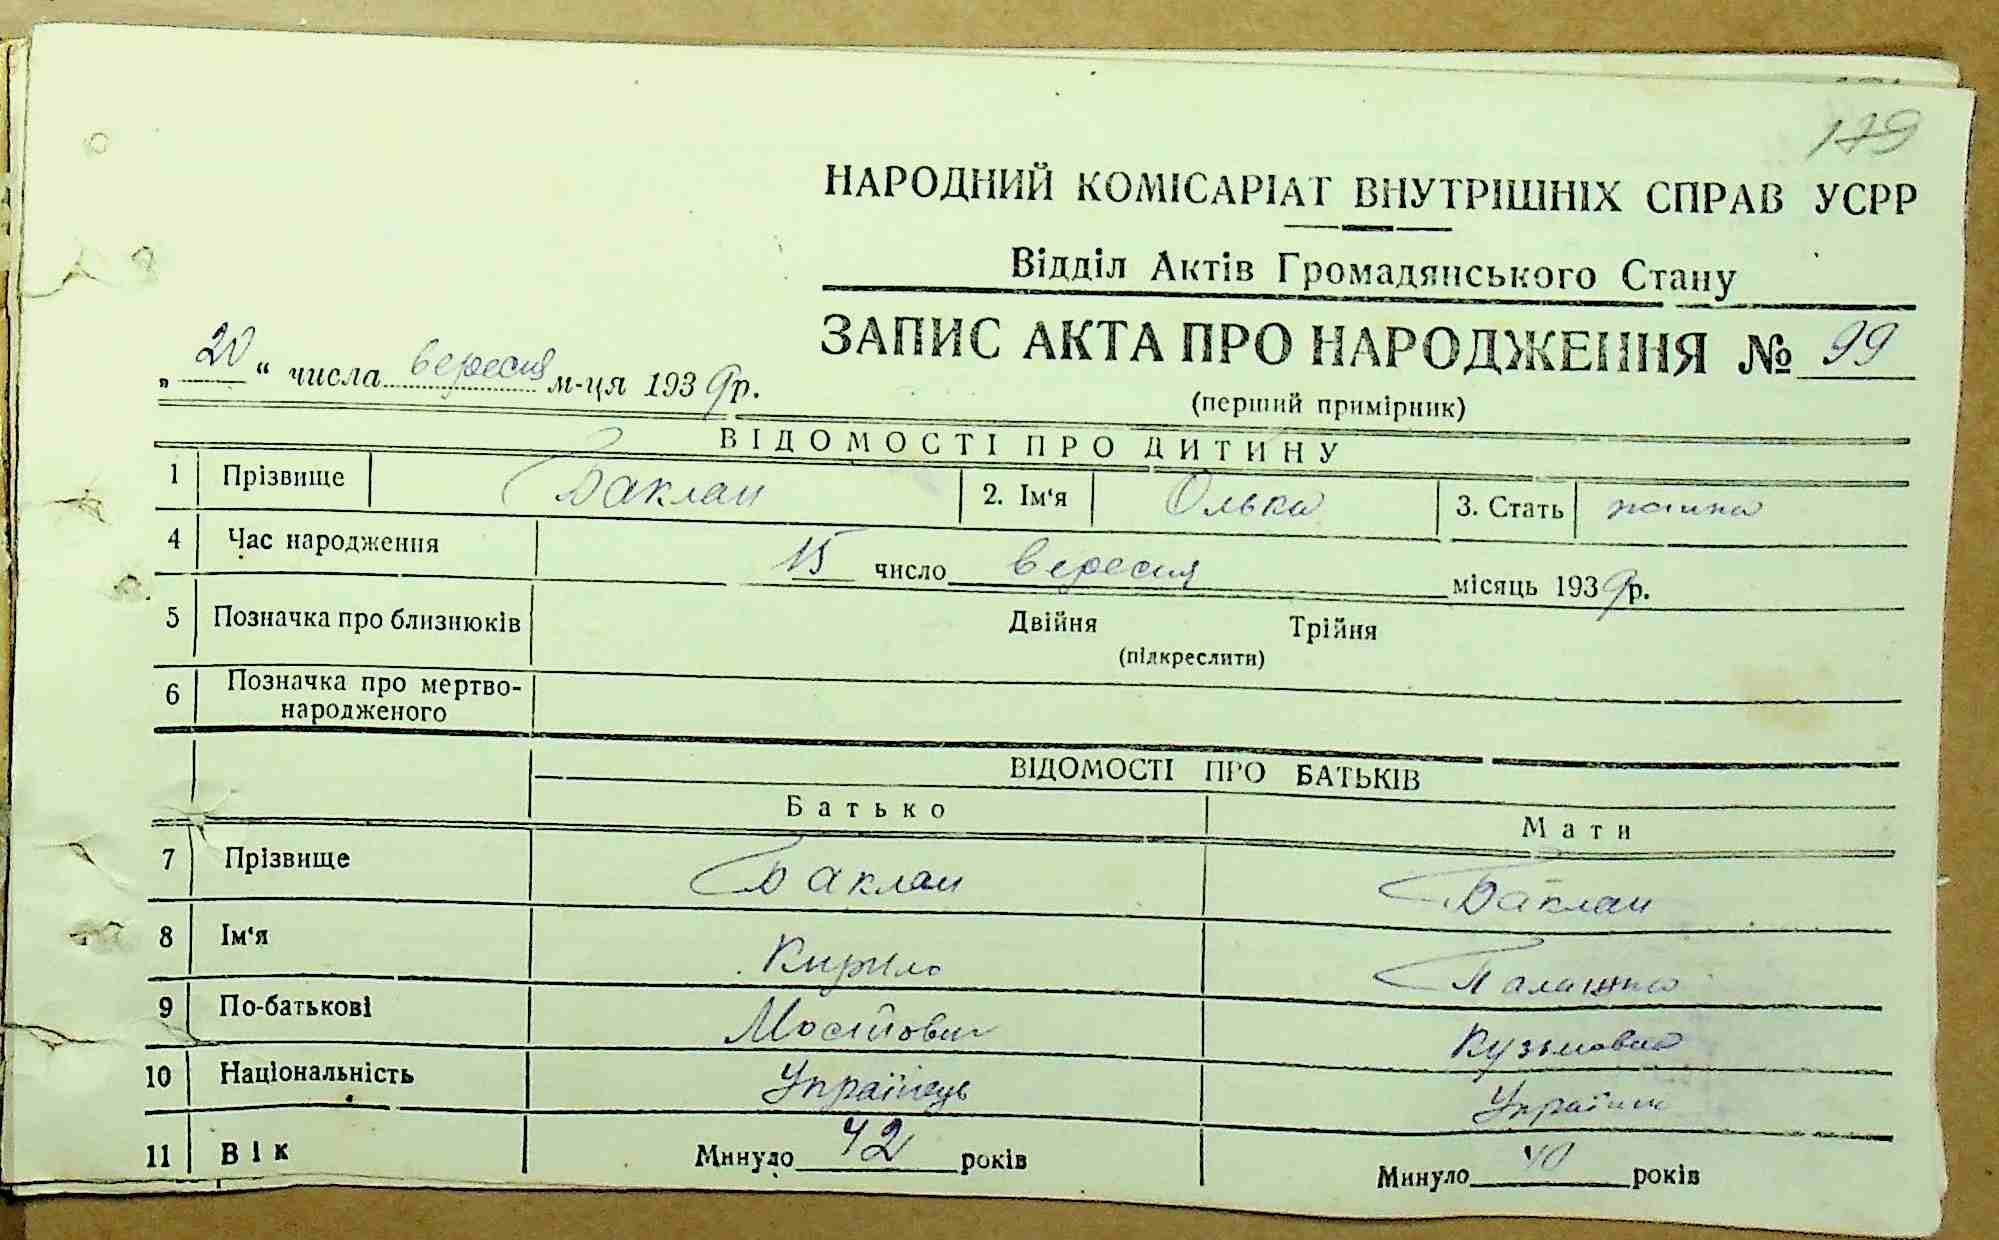 179
НАРОДНИЙ КОМІСАРІАТ ВНУТРІШНІХ СПРАВ УСРР
Відділ Актів Громадянського Стану
ЗАПИС АКТА ПРО НАРОДЖЕННЯ № 99
„ 20 “ числа вересня м-ця 1939р.
(перший примірник)
ВІДОМОСТІ ПРО ДИТИНУ
1 Прізвище Баклан 2. Ім'я Олька 3. Стать
4 Час народження 15 число вересня місяць 1939р.
5 Позначка про близнюків Двійня Трійня
(підкреслити)
6 Позначка про мертво-
народженого
ВІДОМОСТІ ПРО БАТЬКІВ
Батько Мати
7 Прізвище Баклан Баклан
8 Ім'я Кирило
9 По-батькові Мосійович Кузьмовна
10 Національність Українець
11 Вік Минуло 42 років Минуло 40 років